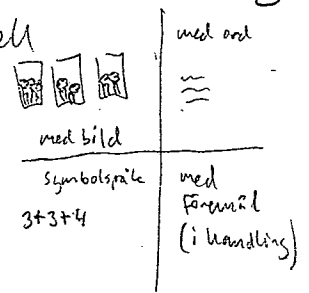 ell
med ord
med bild
Symbolspråk
3+3+4
med
föremål
(i handling)